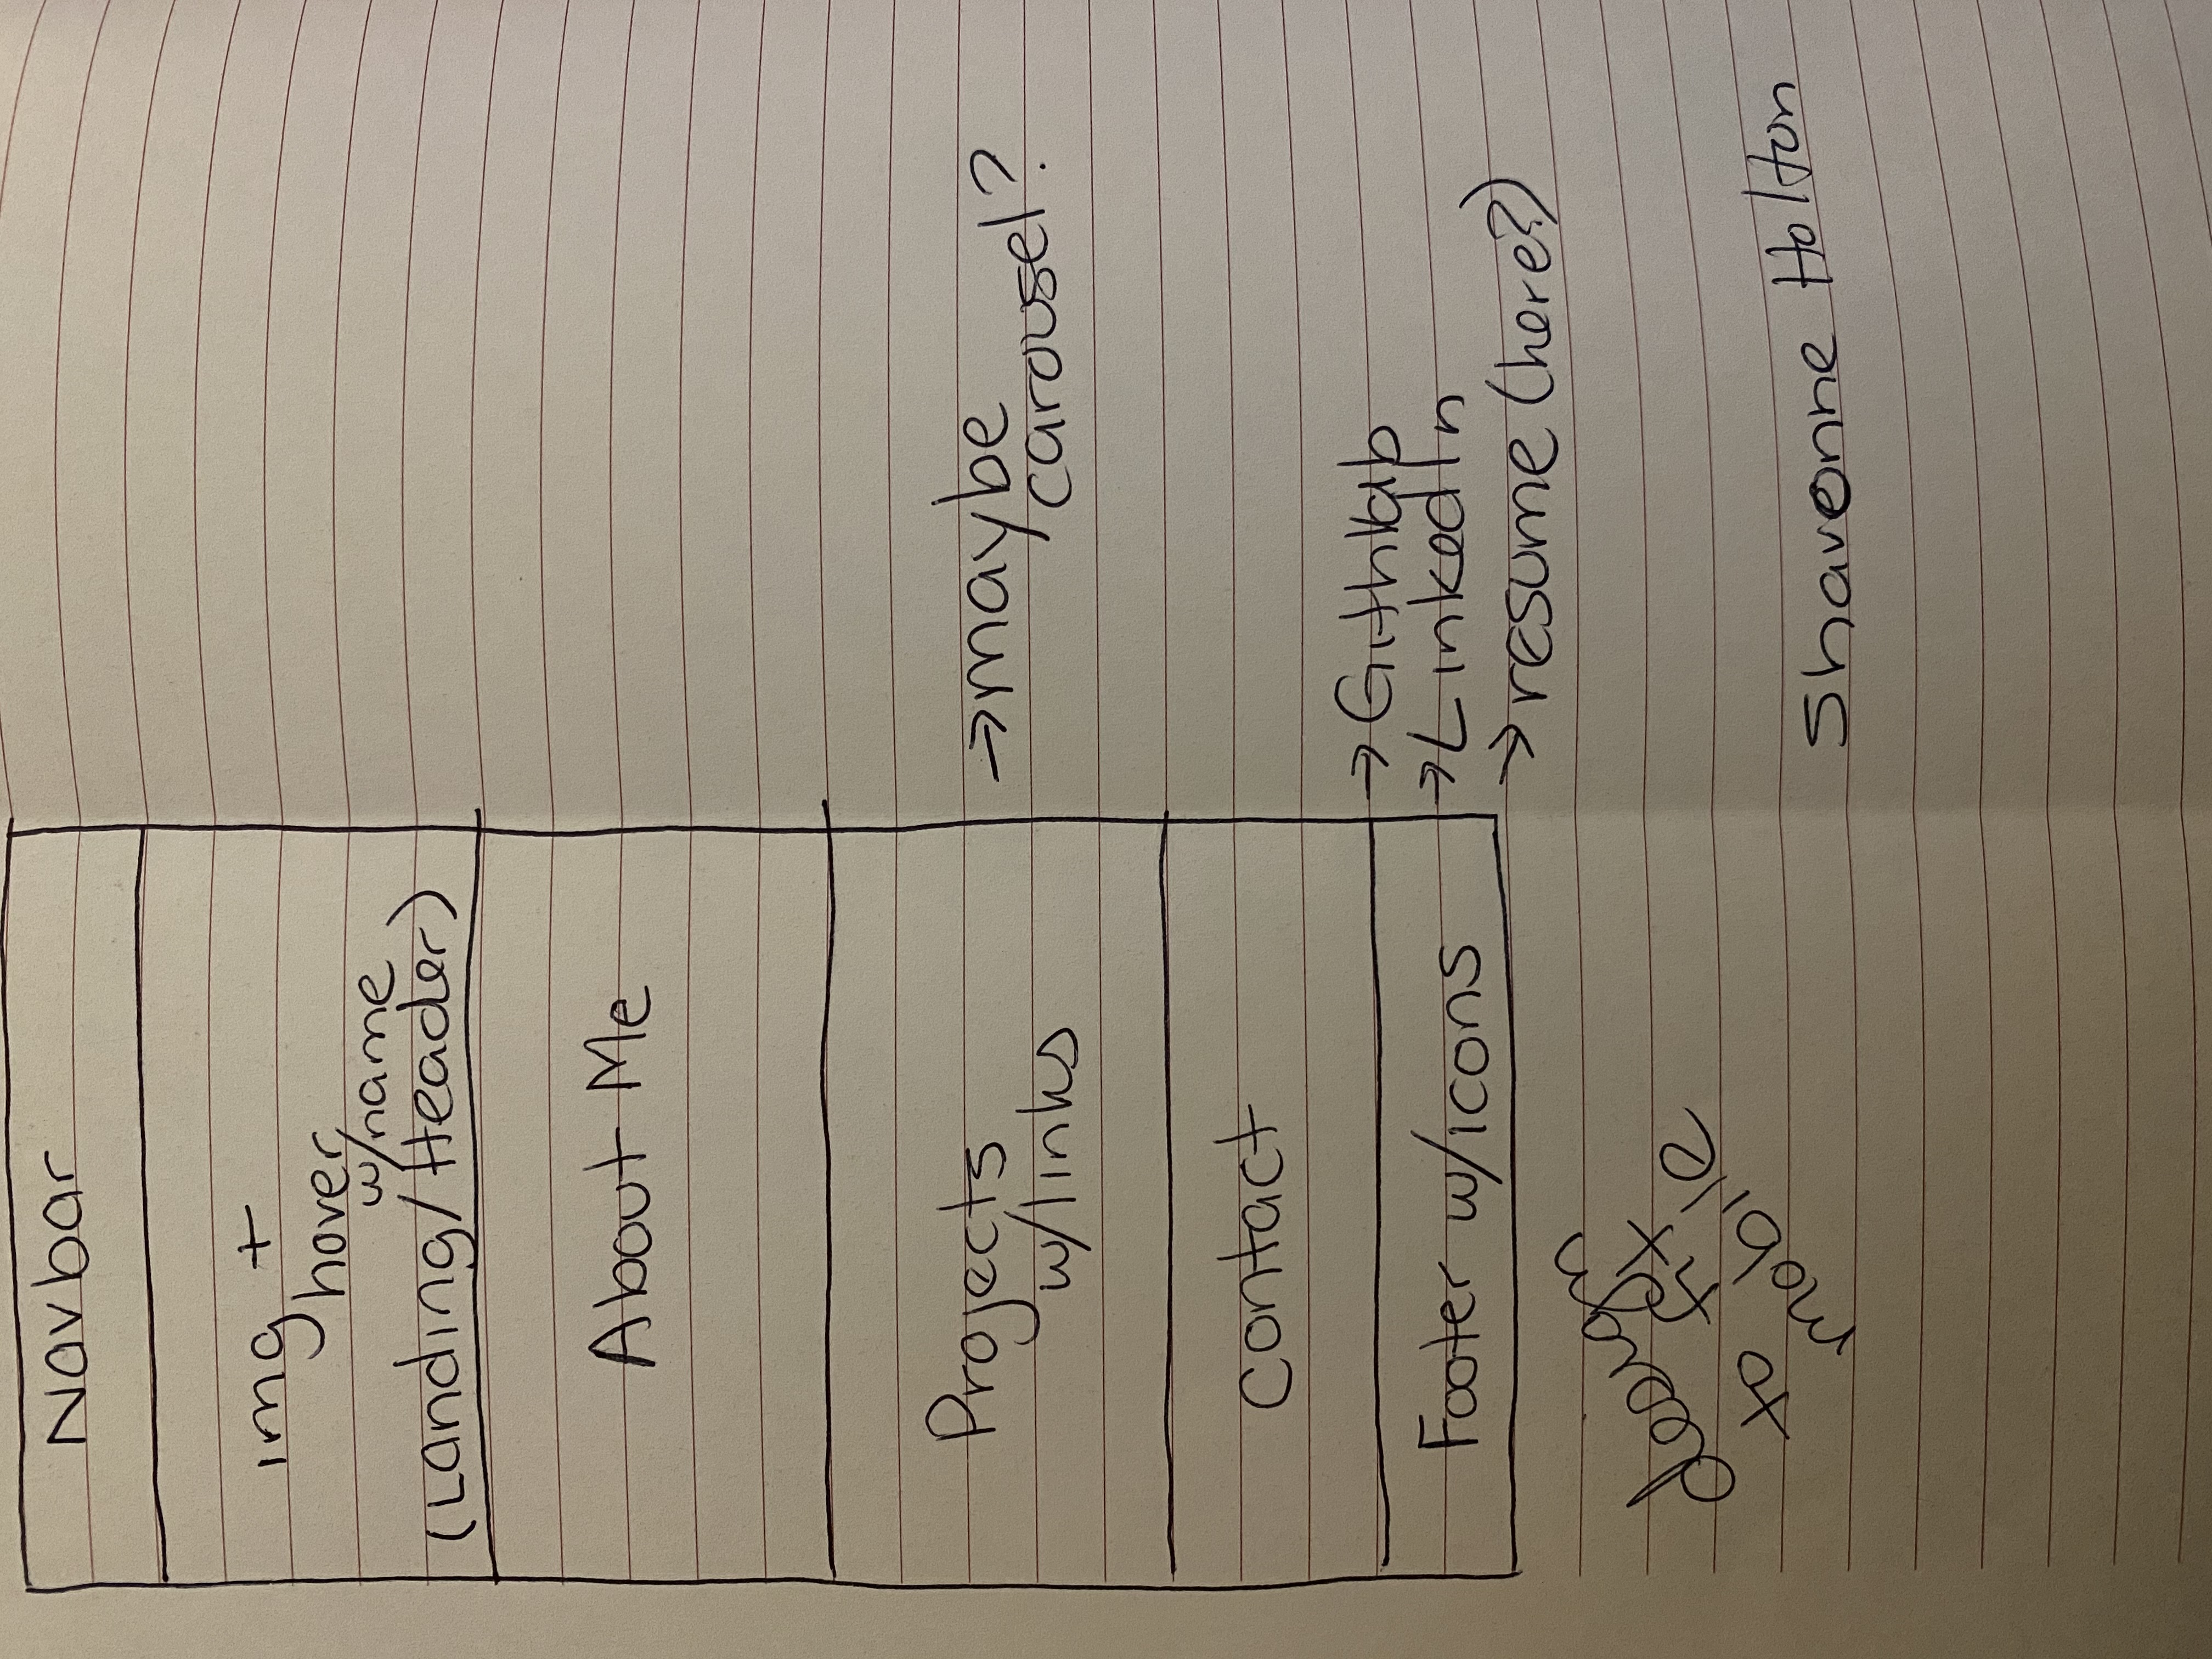 Navbar
img +
hover
w/name
(Landing/Header)
About Me
Projects
w/links
→maybe
carousel?
contact
Footer w/icons
→
→LinkedIn
→resume (here?)
design
to fit
mobile
Shavonne Holton